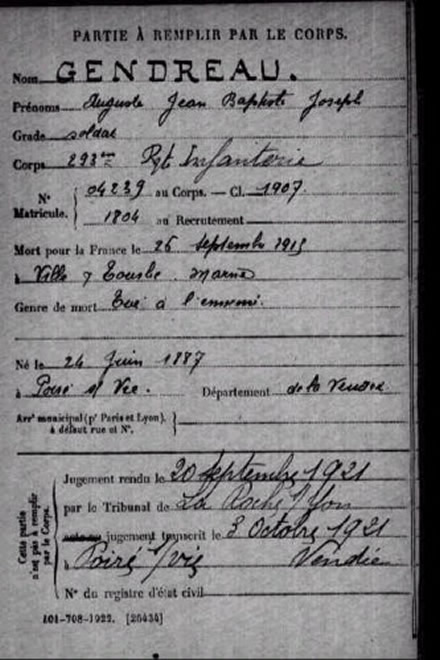 PARTIE À REMPLIR PAR LE CORPS.
Nom GENDREAU.
Prénoms Auguste Jean Baptiste Joseph
Grade soldat
Corps 293ème Rgt Infanterie
N° Matricule. 04239 au Corps. — Cl. 1907.
1804 au Recrutement
Mort pour la France le 26 septembre 1915
à Ville s Tourbe. Marne
Genre de mort Tué à l'ennemi.
Né le 24 Juin 1887
à Poiré s/ Vie. Département de la Vendée
Arrt municipal (pr Paris et Lyon).
à défaut rue et N°.
Cette partie n'est pas à remplir par le Corps.
Jugement rendu le 20 septembre 1921
par le Tribunal de La Roche s/ Yon
jugement transcrit le 3 Octobre 1921
à Poiré s/vie Vendée
N° du registre d'état civil
101-708-1922. [26434]